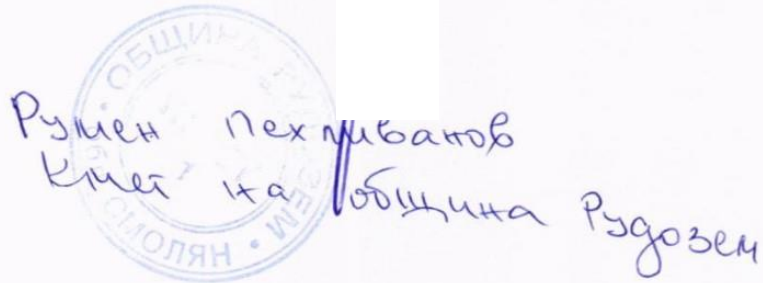 ОБЩИНА РУДОЗЕМ • СМОЛЯН •
Румен Пехливанов
Кмет на община Рудозем